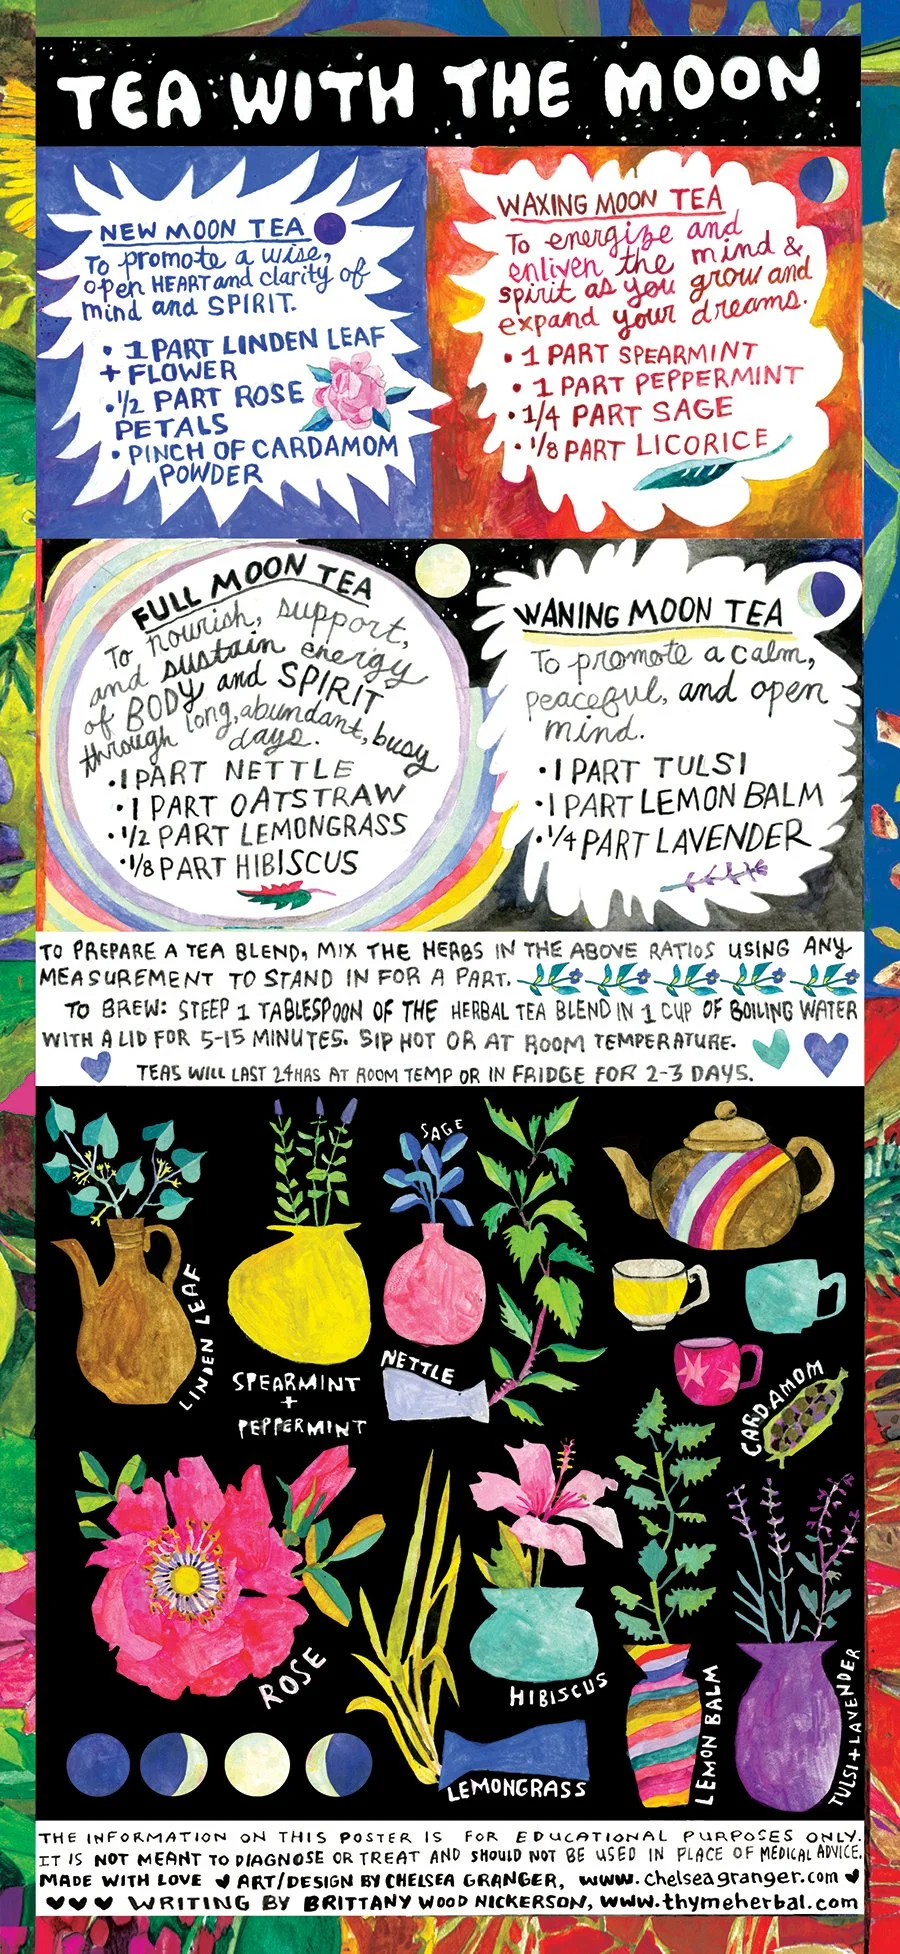 TEA WITH THE MOON
NEW MOON TEA
To promote a wise,
open HEART and clarity of
mind and SPIRIT.
• 1 PART LINDEN LEAF
+ FLOWER
• 1/2 PART ROSE
PETALS
• PINCH OF CARDAMOM
POWDER
WAXING MOON TEA
To energize and
enliven the mind &
spirit as you grow and
expand your dreams.
• 1 PART SPEARMINT
• 1 PART PEPPERMINT
• 1/4 PART SAGE
• 1/8 PART LICORICE
FULL MOON TEA
To nourish, support,
and sustain energy
of BODY and SPIRIT
through long, abundant, busy
days.
• 1 PART NETTLE
• 1 PART OATSTRAW
• 1/2 PART LEMONGRASS
• 1/8 PART HIBISCUS
WANING MOON TEA
To promote a calm,
peaceful, and open
mind.
• 1 PART TULSI
• 1 PART LEMON BALM
• 1/4 PART LAVENDER
TO PREPARE A TEA BLEND, MIX THE HERBS IN THE ABOVE RATIOS USING ANY
MEASUREMENT TO STAND IN FOR A PART.
TO BREW: STEEP 1 TABLESPOON OF THE HERBAL TEA BLEND IN 1 CUP OF BOILING WATER
WITH A LID FOR 5-15 MINUTES. SIP HOT OR AT ROOM TEMPERATURE.
TEAS WILL LAST 24HRS AT ROOM TEMP OR IN FRIDGE FOR 2-3 DAYS.
SAGE
LINDEN LEAF
SPEARMINT
+
PEPPERMINT
NETTLE
CARDAMOM
ROSE
HIBISCUS
LEMONGRASS
LEMON BALM
TULSI + LAVENDER
THE INFORMATION ON THIS POSTER IS FOR EDUCATIONAL PURPOSES ONLY.
IT IS NOT MEANT TO DIAGNOSE OR TREAT AND SHOULD NOT BE USED IN PLACE OF MEDICAL ADVICE.
MADE WITH LOVE ♥ ART/DESIGN BY CHELSEA GRANGER, www.chelseagranger.com ♥
♥♥♥ WRITING BY BRITTANY WOOD NICKERSON, www.thymeherbal.com